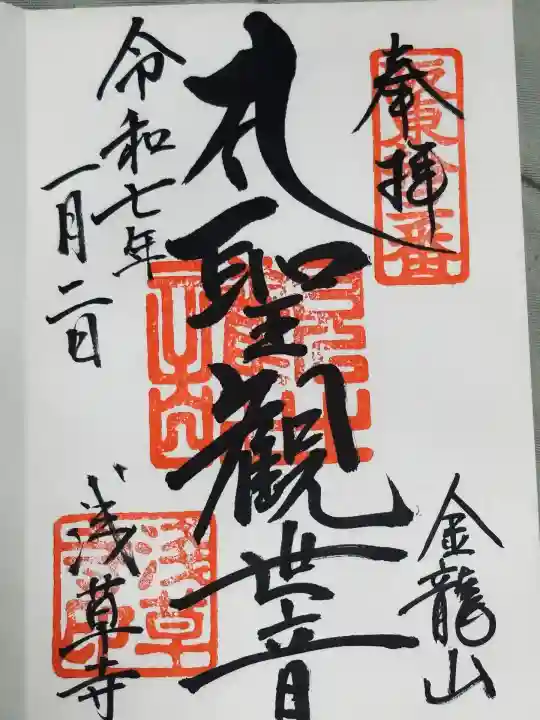 奉拝
坂東十三番
金龍山
聖觀世音
令和七年
一月二日
浅草寺